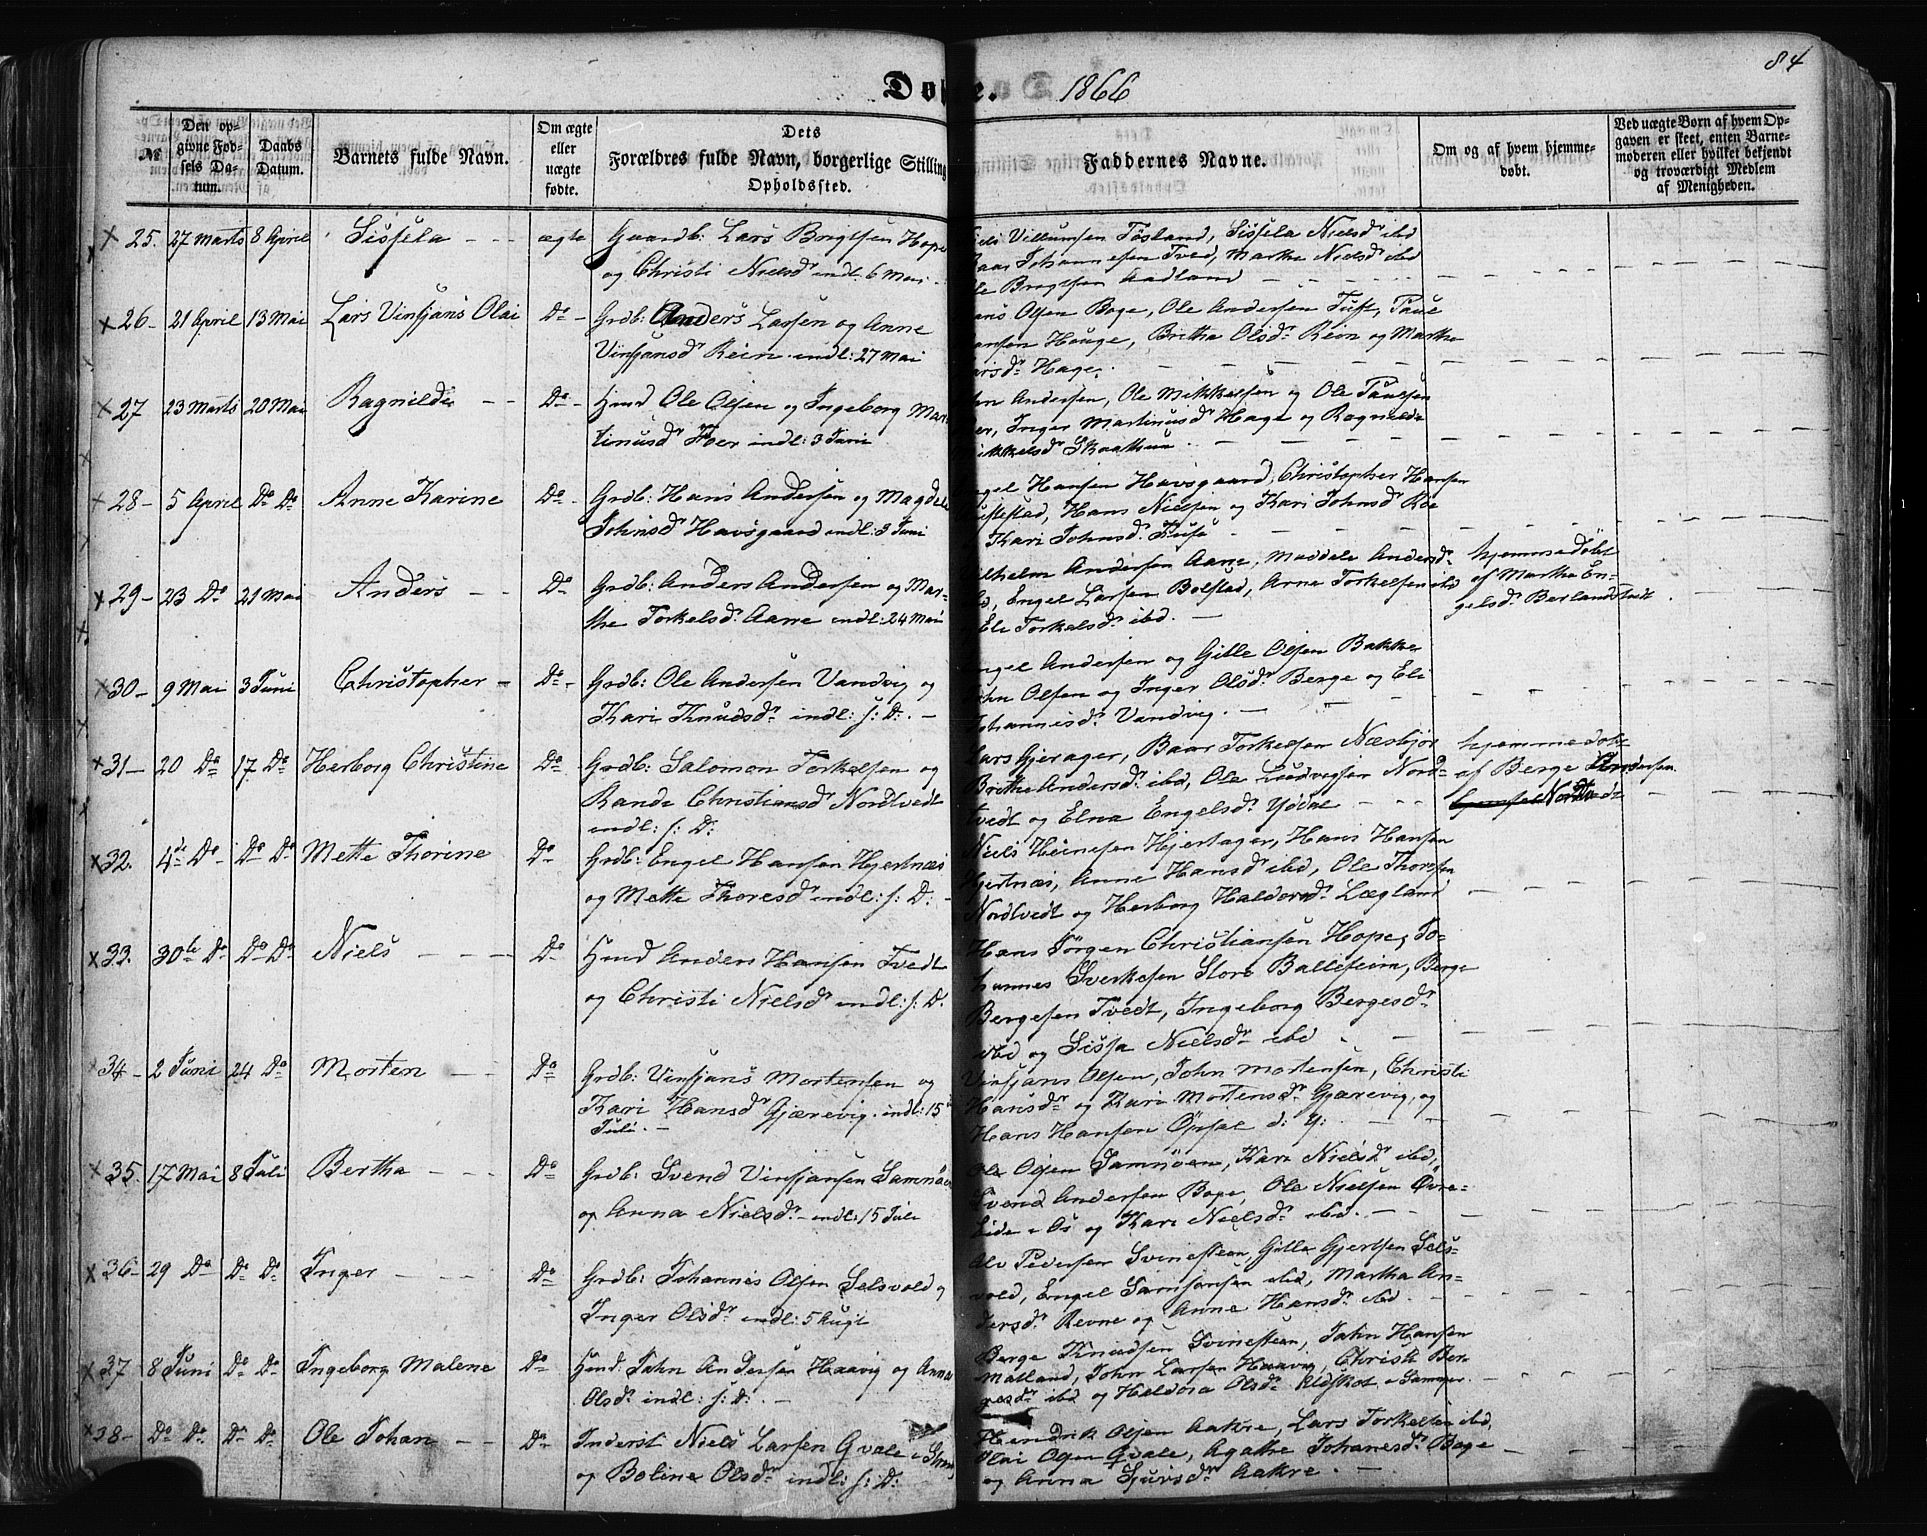 84
Dø e. 1866
№
Den op-
givne Fød-
sels Da-
tum.
Daabs
Datum.
Barnets fulde Navn.
Om ægte
eller
uægte
fødte.
Dets
Forældres fulde Navn, borgerlige Stilling
Opholdssted.
Faddernes Navne.
Om og af hvem hjemme-
døbt.
Ved uægte Børn af hvem Op-
gaven er skeet, enten Barne-
moderen eller hvilket bekjendt
og troværdigt Medlem
af Menigheden.
× 25. 27 Marts 8 April Sissela - - ægte Gaardb: Lars Brigtsen Hope
og Christi Nielsdr indl: 6 Mai
Villumsen Tøsland, Sissela Nielsdr ibd
Johannesen Tved, Marthe Nielsdr ibd
Brigtsen Aadland
× 26- 21 April 13 Mai Lars Vinsjans Olai Do - Grdb: Anders Larsen og Anne
Vinsjansdr Rein indl: 27 Mai
Olsen Boge, Ole Andersen Tuft, Paul
Hansen Houge, Britha Olsdr Rein og Martha
Larsdr Hage.
× 27 23 Marts 20 Mai Ragnilde - - Do - Hmd Ole Olsen og Ingeborg Mar
tinusdr Hær indl: 3 Juni
Andersen, Ole Mikkelsen og Ole Paulsen
Inger Martinusdr Hage og Ragnilde
Mikkelsdr Skaathun
× 28- 5 April Do Do Anne Karine Do - Grdb: Hans Andersen og Magdele
Johnsdr Havsgaard indl: 3 Juni
Engel Hansen Havsgaard, Christopher Hansen
Hans Nielsen og Kari Johnsdr Røe
Kari Johnsdr Tufte
× 29- 23 Do 21 Mai Anders - - Do Grdb: Anders Andersen og Mar-
the Torkelsdr Aarre indl: 24 Mai
Vilhelm Andersen Aarre, Maddele Andersdr
ibd, Engel Larsen Bolstad, Arne Torkelsen ibd
Eli Torkelsdr ibd. -
hjemmedøbt
af Martha En-
gelsdr Berlandstvedt
× 30- 9 Mai 3 Juni Christopher - Do - Grdb: Ole Andersen Vandvig og
Kari Knudsdr indl: s: D: -
Engel Andersen og Gille Olsen Bakke
John Olsen og Inger Olsdr Berge og Eli
Johannisdr Vandvig. -
× 31- 20 Do 17 Do Herborg Christine Do Grdb: Salomon Torkelsen og
Rande Christiansdr Nordtvedt
indl: s: D:
Lars Gjerager, Baar Torkelsen Næsbjør
Brithe Andersdr ibd, Ole Ludvigsen Nord-
tvedt og Elna Engelsdr Ydene
hjemmedøbt
af Berge Andersen
Nordtvedt
× 32. 4de Do Do Do Mette Thorine Do Grdb: Engel Hansen Hjertnæs
og Mette Thoresdr indl: s: D: -
Niels Heinesen Hjertager, Hans Hansen
Hjertnæs, Anne Hansdr ibd, Ole Thoresen
Nordtvedt og Herborg Haldorsdr Lægland
× 33. 30te Do Do Do Niels - - - Do Hmd Anders Hansen Tvedt
og Christi Nielsdr indl: s: D.
Hans Jørgen Christiansen Hope, Jo-
hannes Sverkesen Store Balleseim, Berge
Bergesen Tvedt, Ingeborg Bergesdr
ibd og Sissa Nielsdr ibd
34- 2 Juni 24 Do Morten - - Do Grdb: Vinsjans Mortensen og
Kari Hansdr Gjærevig indl: 15
Juli. -
Vinsjans Olsen, John Mortensen, Christi
Hansdr og Kari Mortensdr Gjærevig, og
Hans Hansen Opsal d: y:
× 35. 17 Mai 8 Juli Bertha - - - Do Grdb: Svend Vinsjansen Samnøe
og Anna Nielsdr - indl: 15 Juli
Ole Olsen Samnøen, Kari Nielsdr ibd,
Svend Andersen Boge, Ole Nielsen Øvre-
Eide i Os og Kari Nielsdr ibd. -
× 36- 29 Do Do Do Inger - - - Do Grdb: Johannes Olsen Selsvold og
Inger Olsdr indl: 5 Augt
Alv Pedersen Svinesteen, Gille Gjertsen Sels-
vold, Engel Samsonsen ibd, Martha An-
dersdr Revne og Anne Hansdr ibd
× 37 8 Juni Do Do Ingeborg Malene Do Hmd. John Andersen Haavig og Anna
Olsdr indl: s: D: . -
Berge Knudsen Svinesteen, John Hansen
Matland, John Larsen Haavig, Christi Ber-
gesdr ibd og Haldora Olsdr
× 38- Do Do Do Do Ole Johan - - Do Inderst Niels Larsen Qvale i
og Boline Olsdr indl: s: D:
Hendrik Olsen Aakre, Lars Torkelsen ibd,
Olai Olsen Qvale, Agathe Johanesdr Boge
og Anna Sjursdr Aakre. -